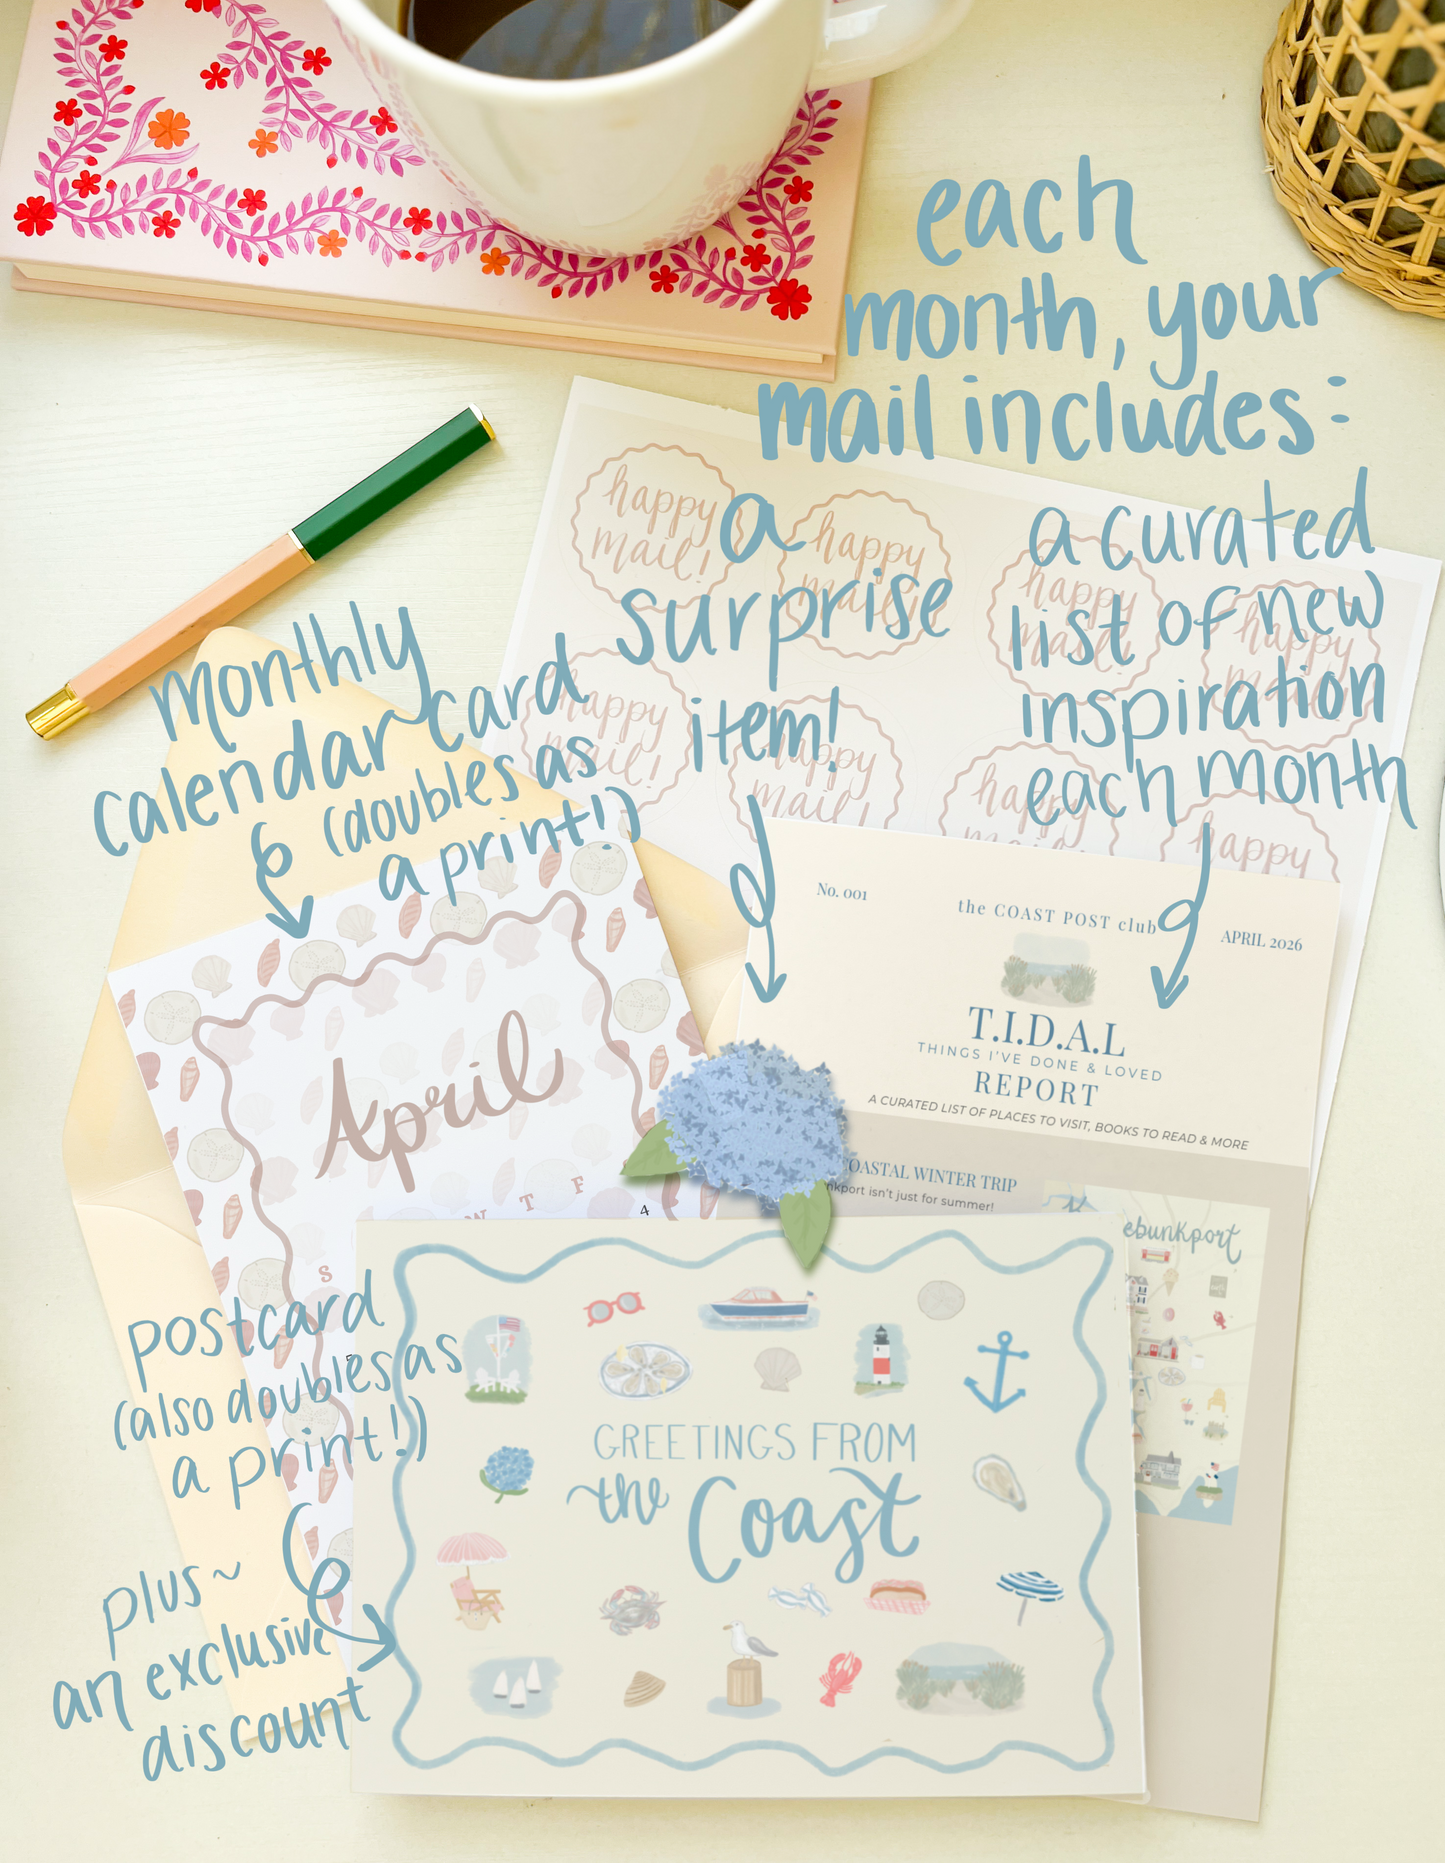 each
month, your
mail includes:
a
surprise
item!
a curated
list of new
inspiration
each month
monthly
calendar card
(doubles as
a print!)
happy
mail!
happy
mail!
happy
mail!
happy
mail!
happy
mail!
happy
mail!
happy
mail!
happy
No. 001
the COAST POST club
APRIL 2026
T.I.D.A.L
THINGS I'VE DONE & LOVED
REPORT
A CURATED LIST OF PLACES TO VISIT, BOOKS TO READ & MORE
OASTAL WINTER TRIP
nkport isn't just for summer!
ebunkport
April
W T F
4
S
5
postcard
(also doubles as
a print!)
plus~
an exclusive
discount
GREETINGS FROM
the Coast